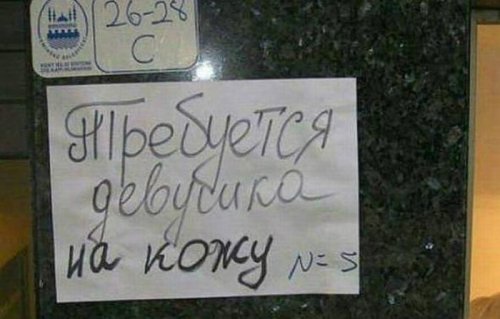 26-28
C
Требуется
девушка
на кожу N=5